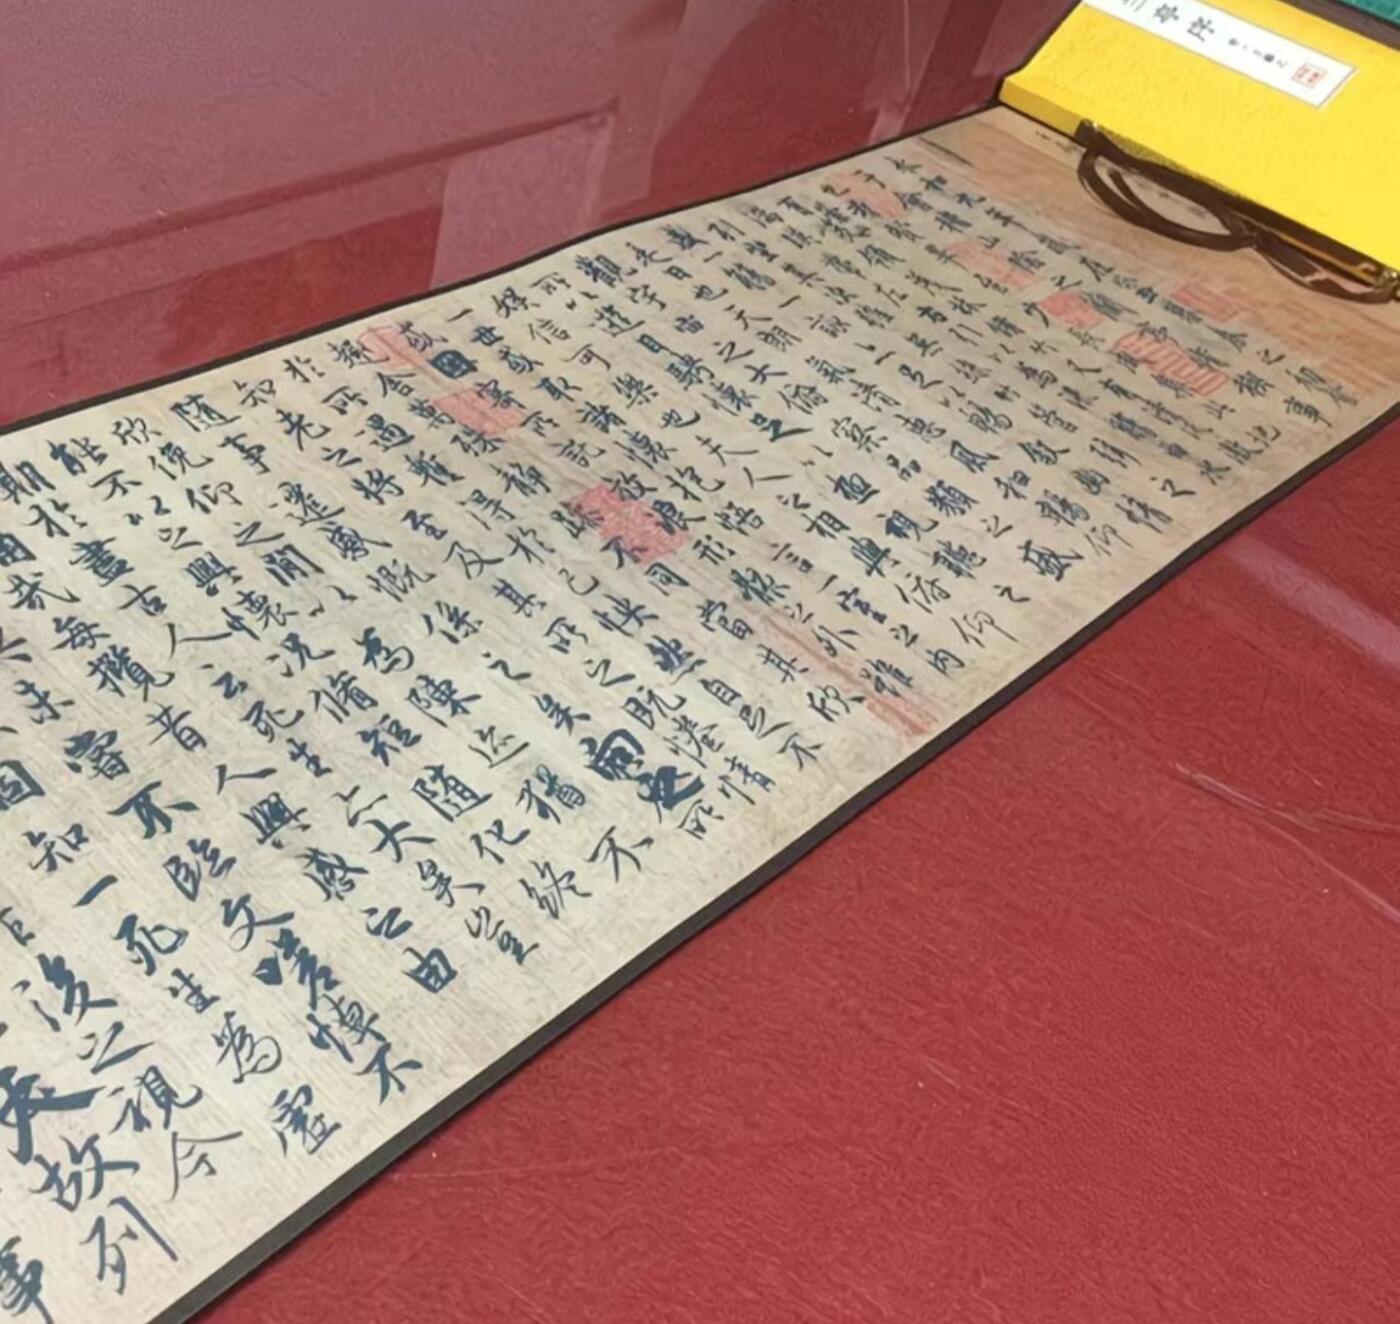 亭序
和年歲在癸丑暮春之初會
于會稽山陰之蘭亭脩稧事
也群賢畢至少長咸集此地
有峻領茂林脩竹又有清流激
湍暎帶左右引以為流觴曲水
列坐其次雖無絲竹管弦之
盛一觴一詠亦足以暢敘幽情
是日也天朗氣清惠風和暢仰
觀宇宙之大俯察品類之盛
所以遊目騁懷足以極視聽之
娛信可樂也夫人之相與俯仰
一世或取諸懷抱悟言一室之內
或因寄所託放浪形骸之外雖
趣舍萬殊靜躁不同當其欣
於所遇暫得於己怏然自足不
知老之將至及其所之既惓情
隨事遷感慨係之矣向之所
欣俛仰之間以為陳迹猶不
能不以之興懷況脩短隨化終
期於盡古人云死生亦大矣豈
痛哉每攬昔人興感之由
未嘗不臨文嗟悼不
固知一死生為虛
後之視今
夫故列
事